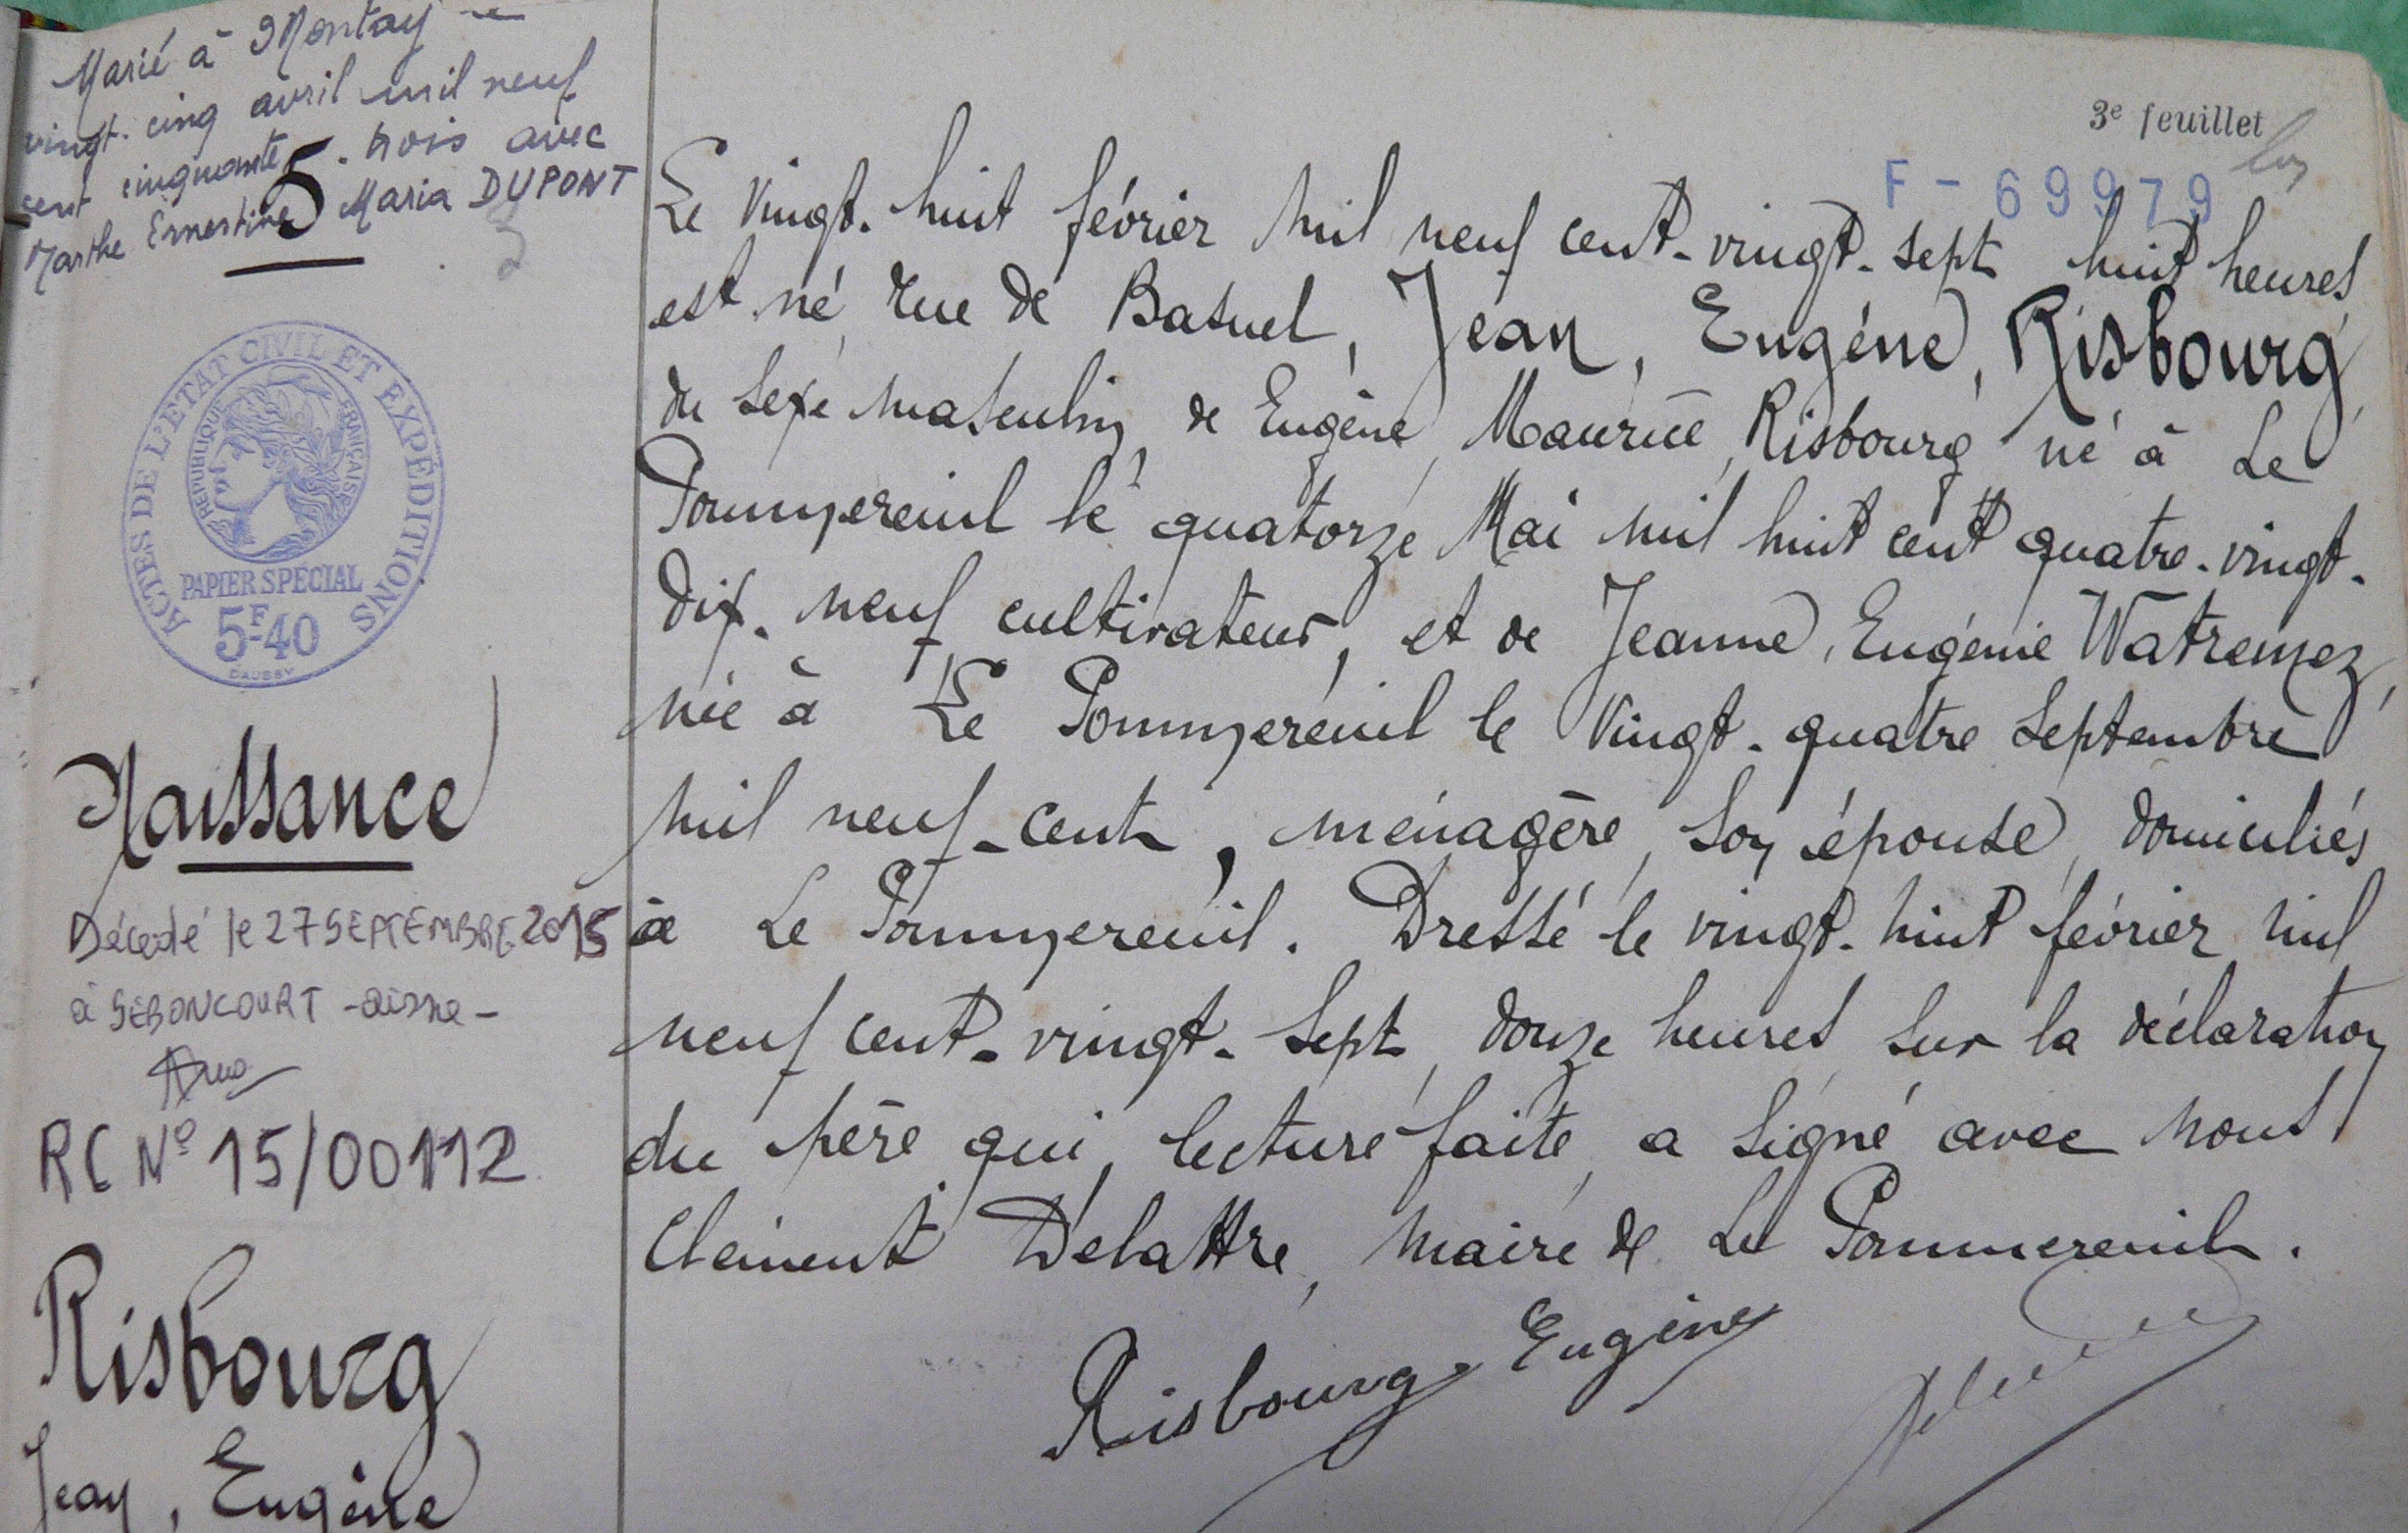 Marié à Montay le
vingt-cinq avril mil neuf
cent cinquante-trois avec
Marthe Ernestine Maria DUPONT
5
ACTES DE L'ETAT CIVIL ET EXPÉDITIONS
REPUBLIQUE FRANÇAISE
PAPIER SPECIAL
5F-40
DAUSSY
Naissance
Décédé le 27 SEPTEMBRE 2015
à SEBONCOURT - aisne -
RC N° 15/00112
Risbourg
Jean, Eugène
3e feuillet
F - 69979
Le vingt-huit février mil neuf cent-vingt-sept huit heures
est né, rue de Basuel, Jean, Eugène, Risbourg,
du sexe masculin, de Eugène, Maurice, Risbourg né à Le
Pommereuil le quatorze Mai mil huit cent quatre-vingt-
dix-neuf cultivateur, et de Jeanne, Eugénie Watremez,
née à Le Pommereuil le Vingt-quatre Septembre
mil neuf-cent, ménagère, son épouse, domiciliés
à Le Pommereuil. Dressé le vingt-huit février mil
neuf cent-vingt-sept, douze heures, sur la déclaration
du père qui, lecture faite, a signé avec nous
Clément Delattre, maire de Le Pommereuil.
Risbourg Eugène